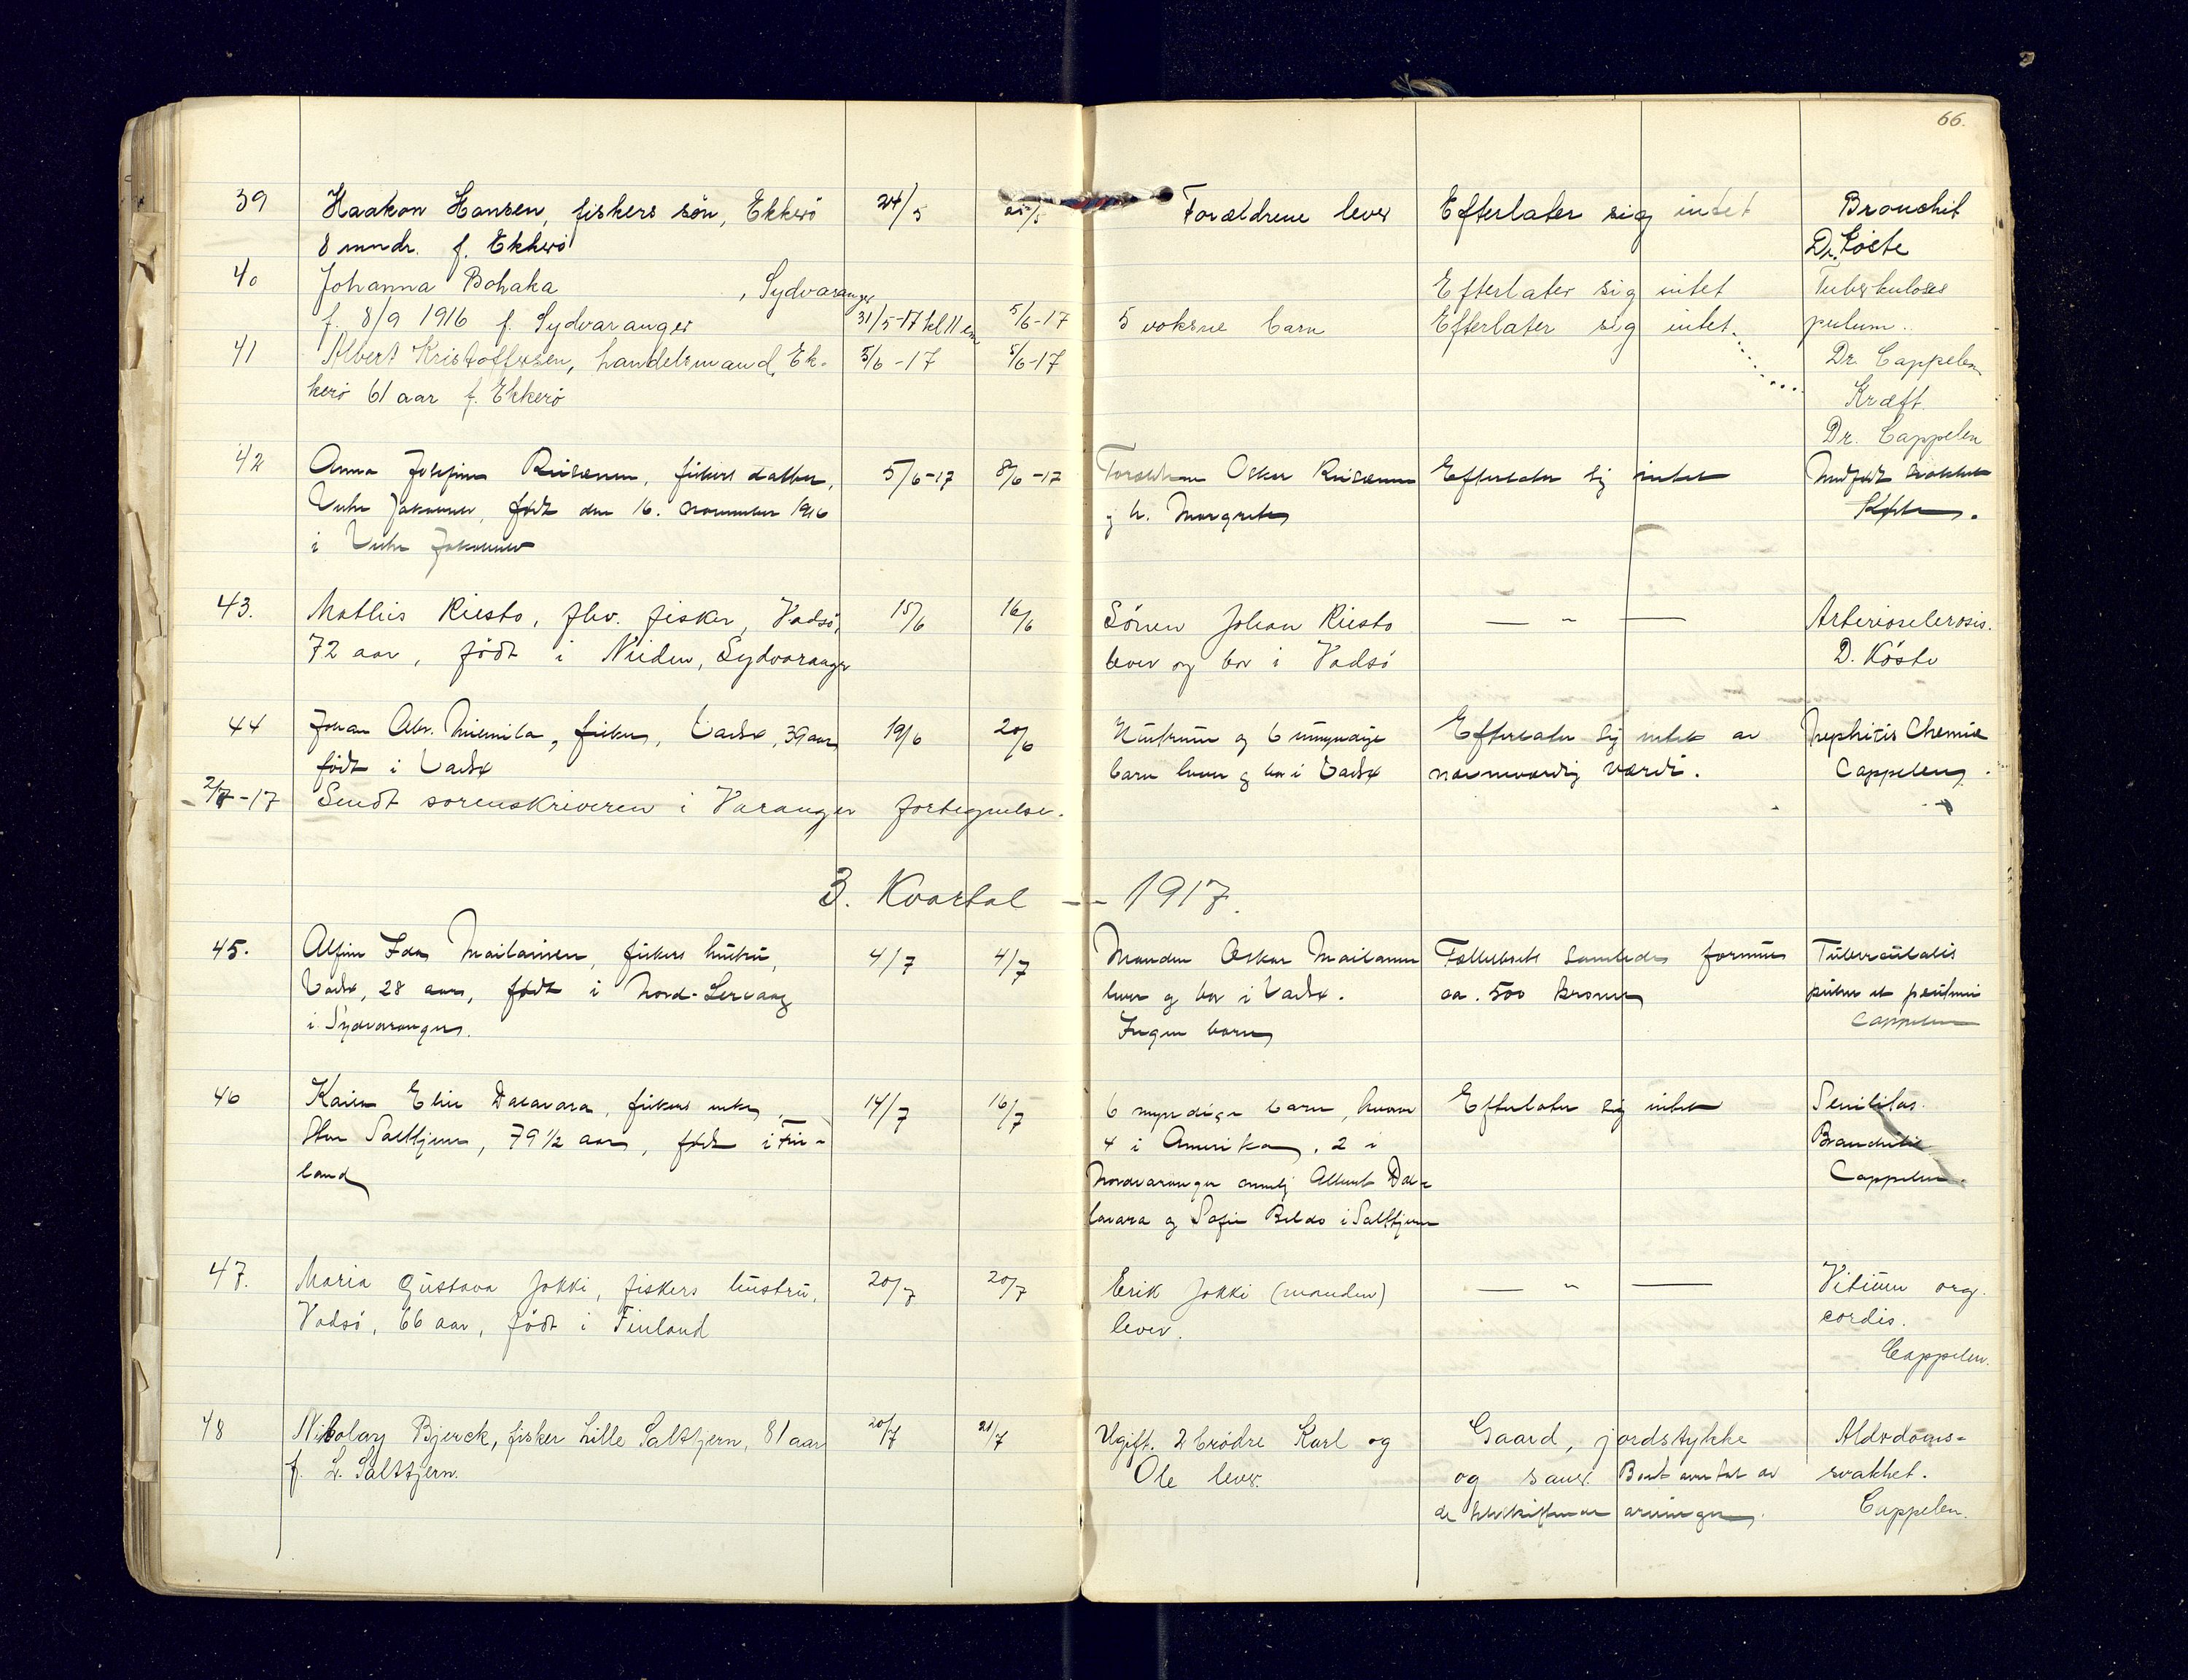 66.
39 Haakon Hansen, fiskers søn, Ekkerö 24/5 25/5 Forældrene lever Efterlater sig intet Bronchit
8 mndr. f. Ekkerö Dr. Köste
40 Johanna Bohaka , Sydvaranger Efterlater sig intet Tuberkuloses
f. 8/9 1916 f. Sydvaranger 31/5-17 kl 11 em 5/6-17 5 voksne barn Efterlater sig intet pulum.
41 Albert Kristoffersen, handelsmand, Ek- 5/6-17 5/6-17 Dr. Cappelen
kerö 61 aar f. Ekkerö Kræft
Dr. Cappelen
42 Anna Josefine Riisanen, fiskers datter, 5/6-17 8/6-17 Forældrene Oskar Riisanen Efterlater sig intet Medfødt svakhet
Jakobselv, født den 16. november 1916 og h. Margrete Køste.
i Jakobselv
43. Mathis Riesto, fhv. fisker, Vadsö, 15/6 16/6 Sönen Johan Riesto — " — Arteriosclerosis.
72 aar, födt i Neiden, Sydvaranger lever og bor i Vadsö D. Köste
44 Johan Abr. Niemila, fisker, Vadsø, 39 aar 19/6 20/6 Hustruen og 6 umyndige Efterlater sig intet av Nephitis Chemie
født i Vadsø barn lever og bor i Vadsø nævneværdig værdi. Cappelen.
2/7-17 Sendt sorenskriveren i Varanger fortegnelse.
3. Kvartal -- 1917.
45. Alfine Ida Mailainen, fiskers hustru, 4/7 4/7 Manden Oskar Mailainen Fællesboets samlede formue Tuberculosis
Vadsø, 28 aar, født i Nord-Lervaag lever og bor i Vadsø. ca. 500 kroner pulm et
i Sydvaranger. Ingen barn Cappelen
46 Kaisa Elise Dalavara, fiskers enke, 14/7 16/7 6 myndige barn, hvorav Efterlater sig intet Senilitas.
Stor Salttjern, 79 1/2 aar, født i Fin- 4 i Amerika, 2 i Bronchitis
land Nordvaranger nemlig Albert Da- Cappelen.
lavara og Sofie Beldo i Salttjern
47. Maria Gustava Jokki, fiskers hustru, 20/7 20/7 Erik Jokki (manden) — " — Vitium org.
Vadsö, 66 aar, födt i Finland lever. cordis.
Cappelen.
48 Nikolay Bjerck, fisker Lille Salttjern, 81 aar 20/7 21/7 Ugift. 2 brödre Karl og Gaard, jordstykke Alderdoms-
f. L. Salttjern. Ole lever. og sauer. Boet overtat av svakhet.
de arvinger. Cappelen.